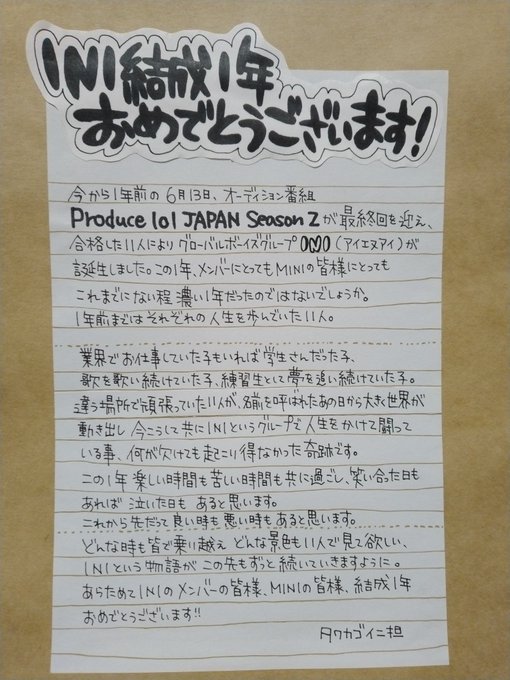 INI結成1年
おめでとうございます!
今から1年前の6月13日、オーディション番組
Produce 101 JAPAN Season2が最終回を迎え、
合格した11人によりグローバルボーイズグループINI(アイエヌアイ)が
誕生しました。この1年、メンバーにとってもMINIの皆様にとっても
これまでにない程濃い1年だったのではないでしょうか。
1年前まではそれぞれの人生を歩んでいた11人。
業界でお仕事していた子もいれば学生さんだった子、
歌を歌い続けていた子、練習生として夢を追い続けていた子。
違う場所で頑張っていた11人が、名前を呼ばれたあの日から大きく世界が
動き出し今こうして共にINIというグループで人生をかけて闘って
いる事、何が欠けても起こり得なかった奇跡です。
この1年楽しい時間も苦しい時間も共に過ごし、笑い合った日も
あれば泣いた日もあると思います。
これから先だって良い時も悪い時もあると思います。
どんな時も皆で乗り越えどんな景色も11人で見て欲しい、
INIという物語がこの先もずっと続いていきますように。
あらためてINIのメンバーの皆様、MINIの皆様、結成1年
おめでとうございます!!
タワカゴイニ担